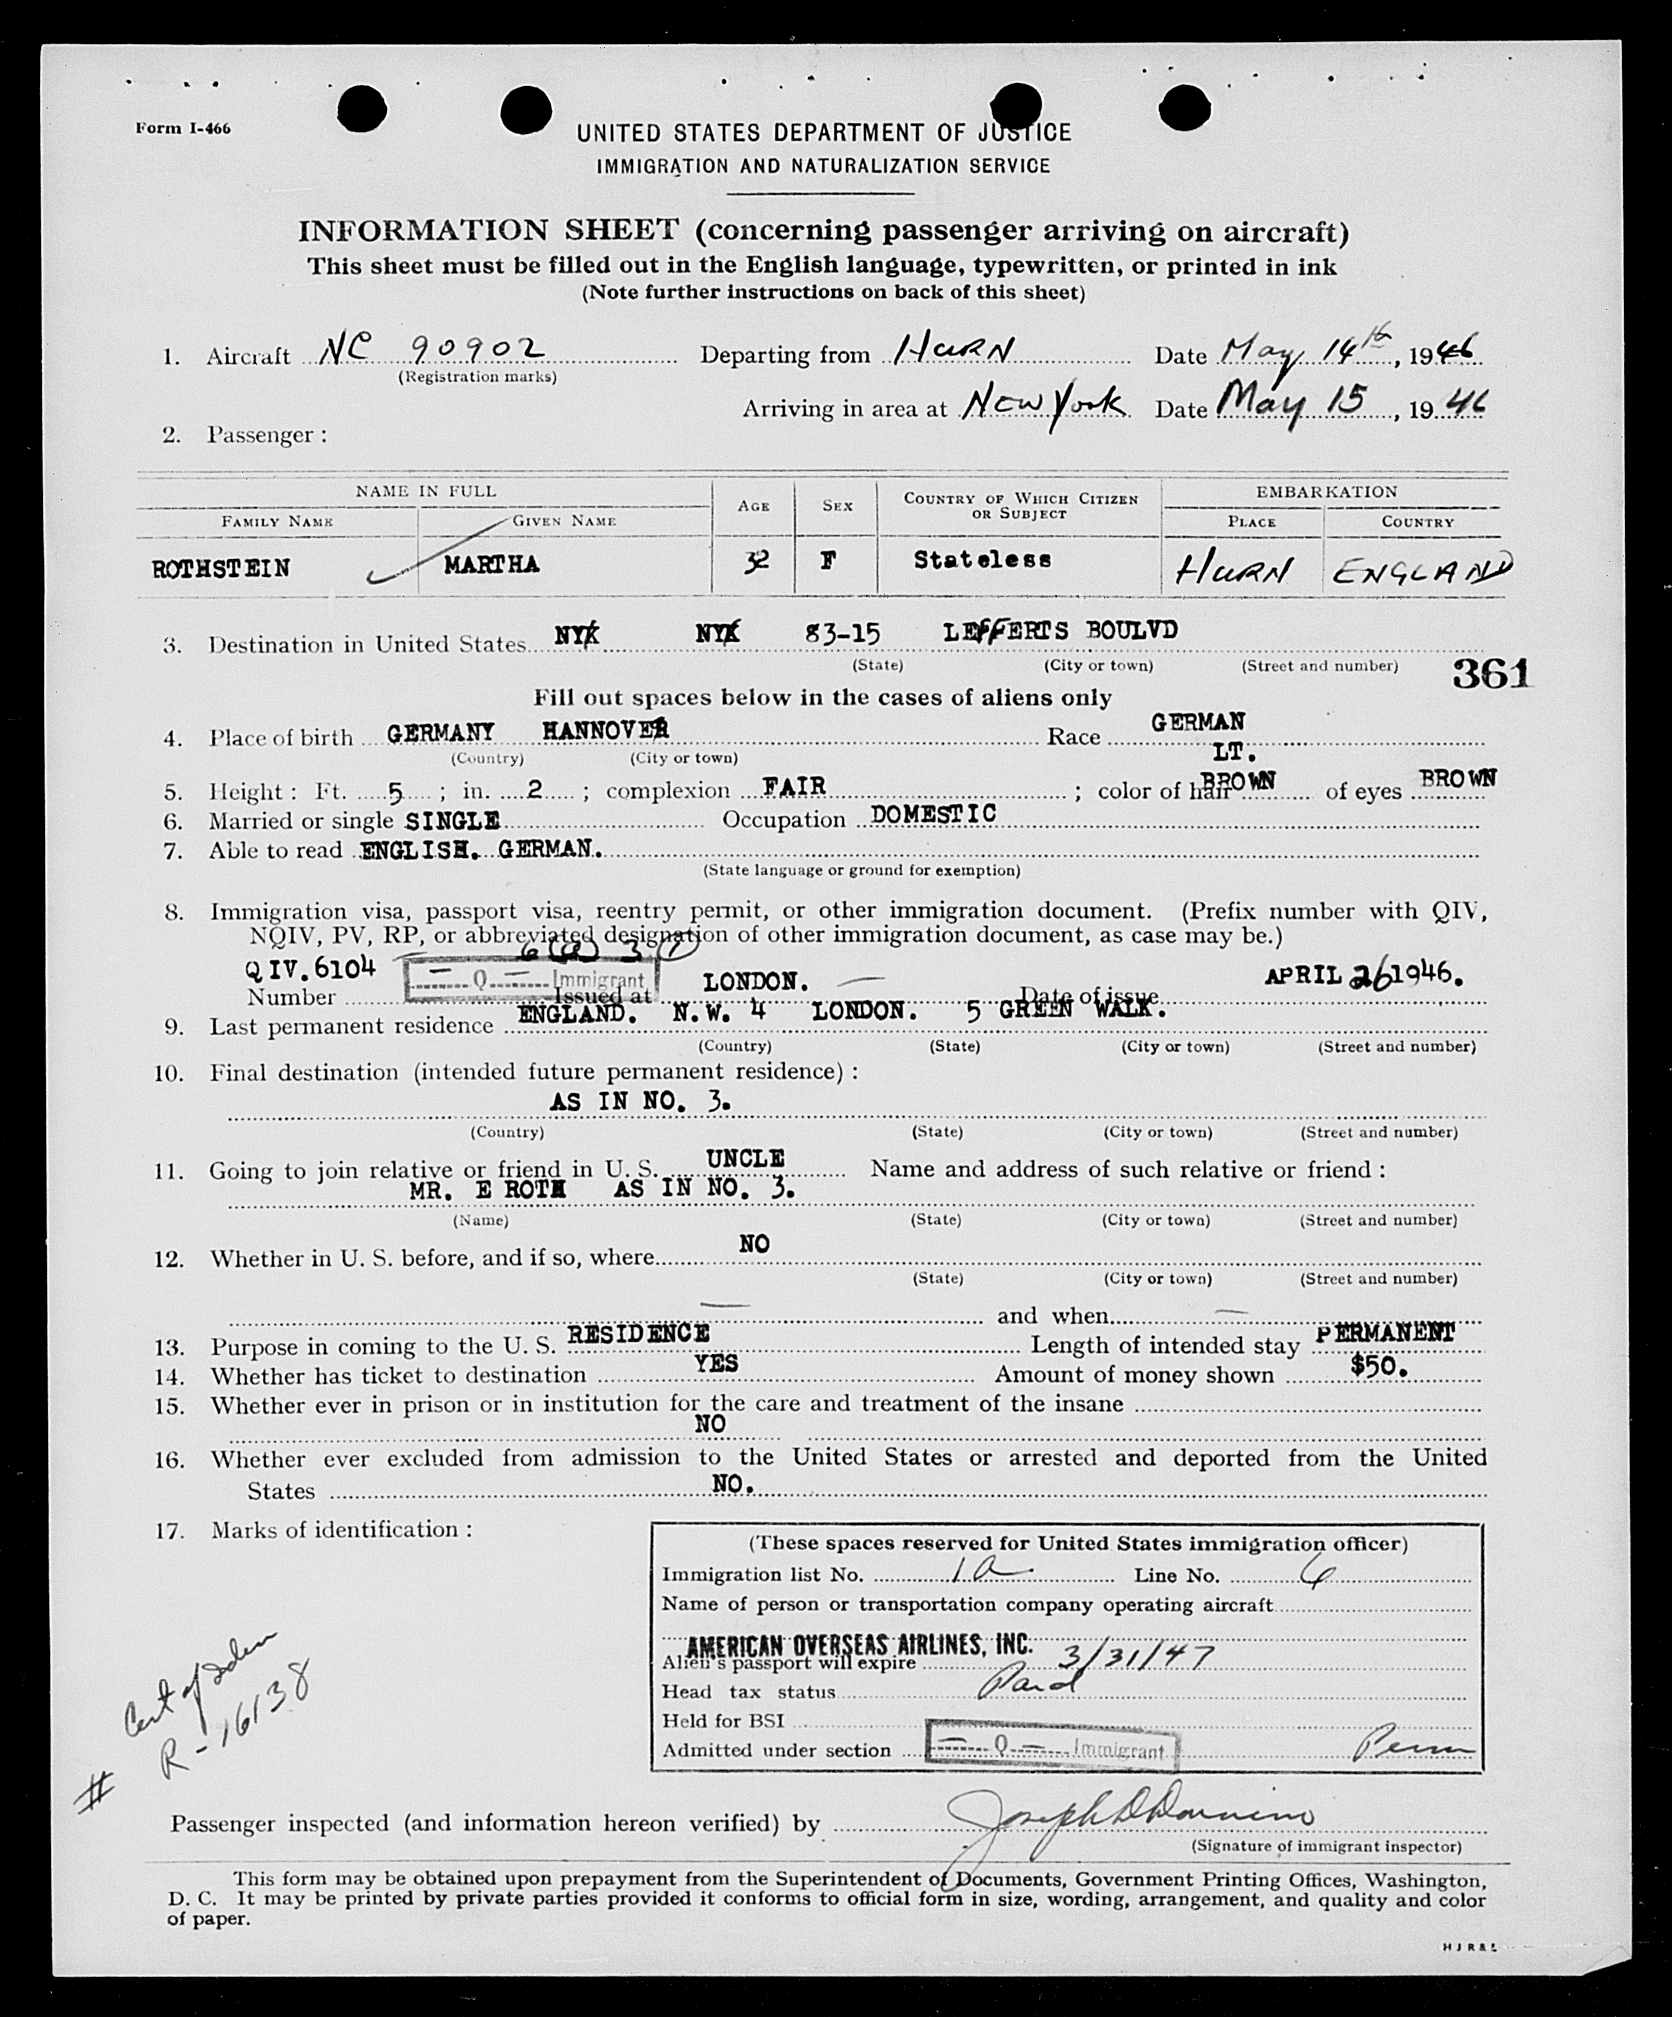 Form I-466
UNITED STATES DEPARTMENT OF JUSTICE
IMMIGRATION AND NATURALIZATION SERVICE
INFORMATION SHEET (concerning passenger arriving on aircraft)
This sheet must be filled out in the English language, typewritten, or printed in ink
(Note further instructions on back of this sheet)
1. Aircraft NC 90902 Departing from HURN Date May 14th, 1946
(Registration marks)
Arriving in area at New York Date May 15, 1946
2. Passenger:
NAME IN FULL EMBARKATION
FAMILY NAME GIVEN NAME AGE SEX COUNTRY OF WHICH CITIZEN OR SUBJECT PLACE COUNTRY
ROTHSTEIN MARTHA 32 F Stateless HURN ENGLAND
3. Destination in United States NYK NYK 83-15 LEFFERTS BOULVD
(State) (City or town) (Street and number)
361
Fill out spaces below in the cases of aliens only
4. Place of birth GERMANY HANNOVER Race GERMAN
(Country) (City or town)
5. Height: Ft. 5; in. 2; complexion FAIR; color of hair LT. BROWN of eyes BROWN
6. Married or single SINGLE Occupation DOMESTIC
7. Able to read ENGLISH. GERMAN.
(State language or ground for exemption)
8. Immigration visa, passport visa, reentry permit, or other immigration document. (Prefix number with QIV,
NQIV, PV, RP, or abbreviated designation of other immigration document, as case may be.)
6(a) 3 (1)
Number QIV.6104 — Q — Immigrant Issued at LONDON. Date of issue APRIL 26 1946.
9. Last permanent residence ENGLAND. N.W. 4 LONDON. 5 GREEN WALK.
(Country) (State) (City or town) (Street and number)
10. Final destination (intended future permanent residence):
AS IN NO. 3.
(Country) (State) (City or town) (Street and number)
11. Going to join relative or friend in U. S. UNCLE Name and address of such relative or friend:
MR. E ROTH AS IN NO. 3.
(Name) (State) (City or town) (Street and number)
12. Whether in U. S. before, and if so, where NO
(State) (City or town) (Street and number)
— and when —
13. Purpose in coming to the U. S. RESIDENCE Length of intended stay PERMANENT
14. Whether has ticket to destination YES Amount of money shown $50.
15. Whether ever in prison or in institution for the care and treatment of the insane
NO
16. Whether ever excluded from admission to the United States or arrested and deported from the United
States NO.
17. Marks of identification:
(These spaces reserved for United States immigration officer)
Immigration list No. 1a Line No. 6
Name of person or transportation company operating aircraft
AMERICAN OVERSEAS AIRLINES, INC.
Alien's passport will expire 3/31/47
Head tax status Paid
Held for BSI
Admitted under section — Q — Immigrant Perm
Cert of Iden
# R-16138
Passenger inspected (and information hereon verified) by
(Signature of immigrant inspector)
This form may be obtained upon prepayment from the Superintendent of Documents, Government Printing Offices, Washington,
D. C. It may be printed by private parties provided it conforms to official form in size, wording, arrangement, and quality and color
of paper.